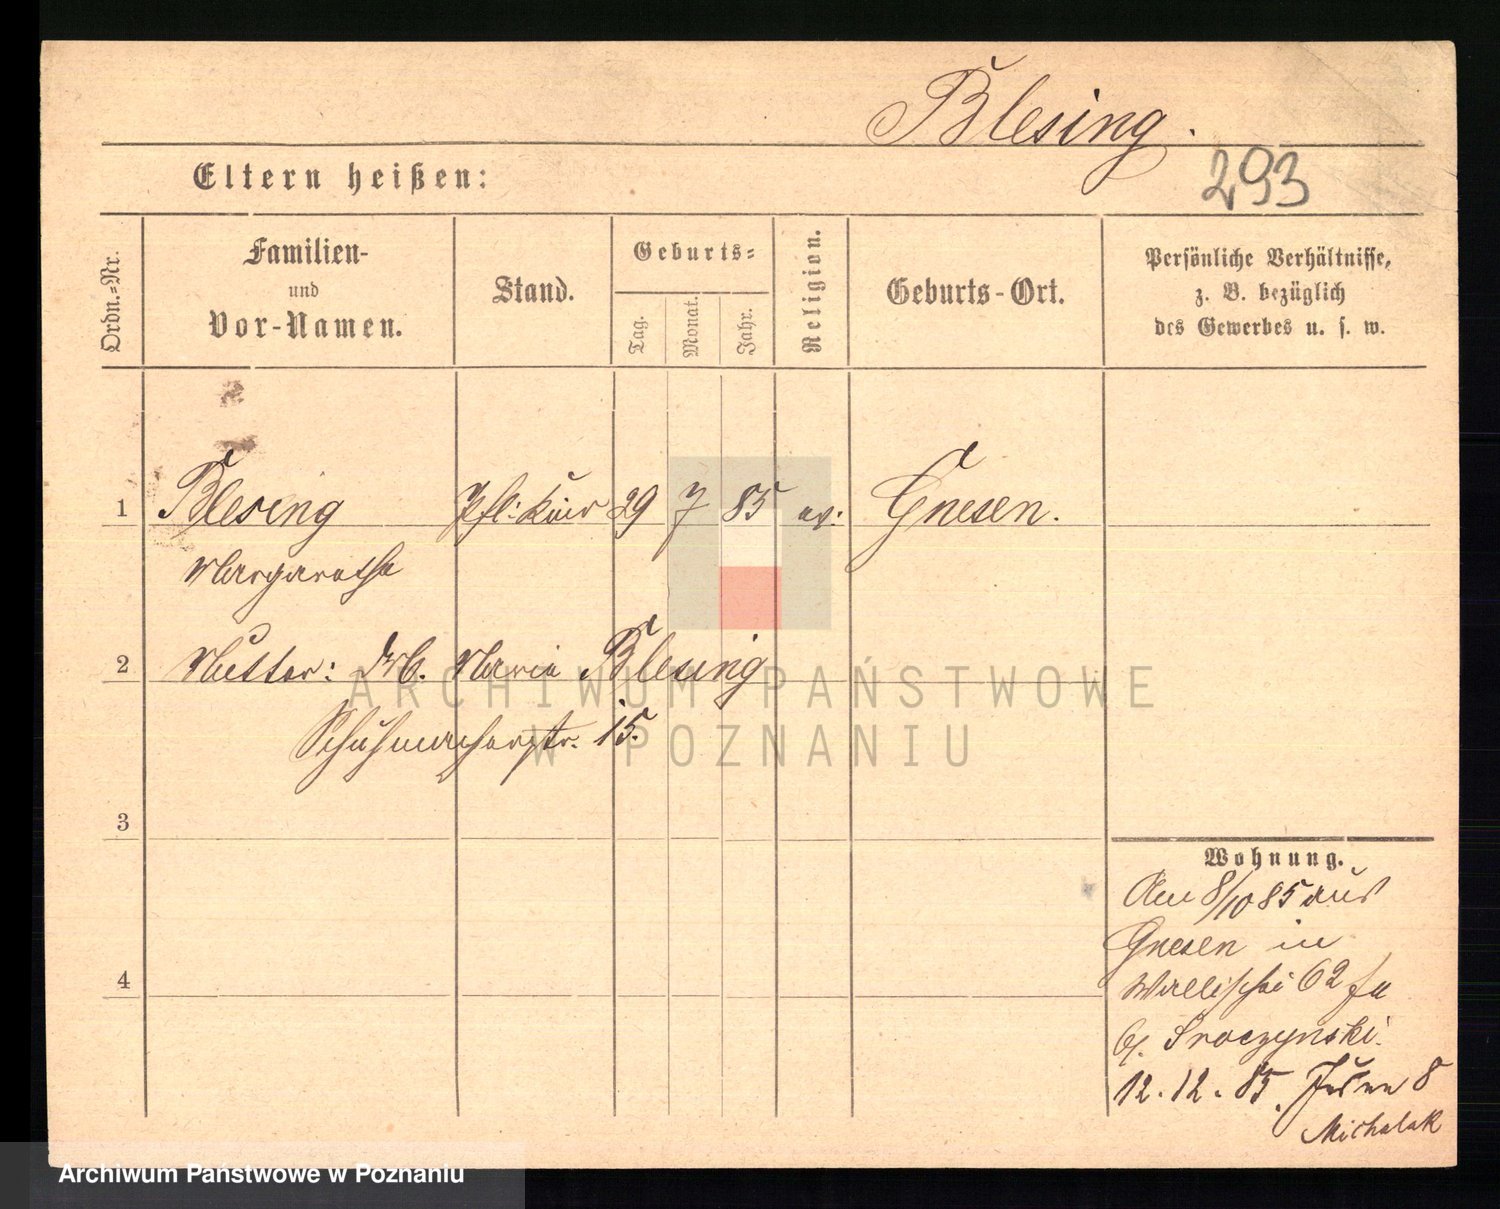 Blesing.
293
Eltern heißen:
Ordn.-Nr.
Familien-
und
Vor-Namen.
Stand.
Geburts-
Tag.
Monat.
Jahr.
Religion.
Geburts-Ort.
Persönliche Verhältnisse,
z. B. bezüglich
des Gewerbes u. s. w.
1 Blesing Pfl: Kind 29 7 85 ev: Gnesen.
Margarethe
2 Mutter: Maria Blesing
Schuhmacherstr. 15.
3
4
Wohnung.
Am 8/10 85 aus
Gnesen in
Wallischei 62
b/. Sroczynski.
12. 12. 85. 8
Michalak
ARCHIWUM PAŃSTWOWE
W POZNANIU
Archiwum Państwowe w Poznaniu